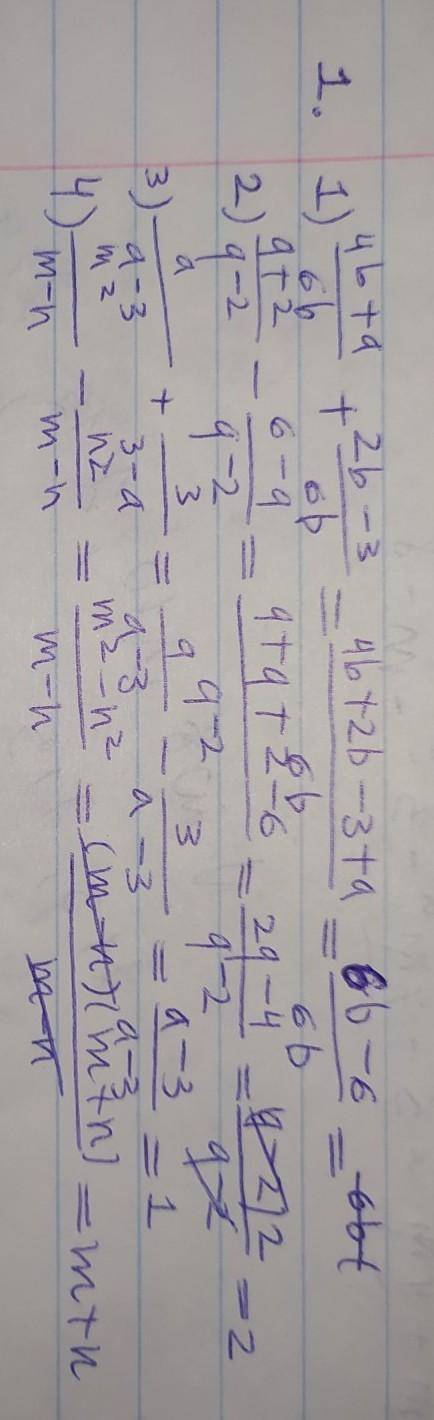 1. 1) \frac{4b+9}{6b} + \frac{2b-3}{6b} = \frac{4b+2b-3+9}{6b} = \frac{6b-6}{6b} =
2) \frac{a+2}{a-2} - \frac{6-a}{a-2} = \frac{a+a+2-6}{a-2} = \frac{2a-4}{a-2} = \frac{(a-2)2}{a-2} = 2
3) \frac{a}{a-3} + \frac{3}{3-a} = \frac{a}{a-3} - \frac{3}{a-3} = \frac{a-3}{a-3} = 1
4) \frac{m^2}{m-n} - \frac{n^2}{m-n} = \frac{m^2-n^2}{m-n} = \frac{(m-n)(m+n)}{m-n} = m+n